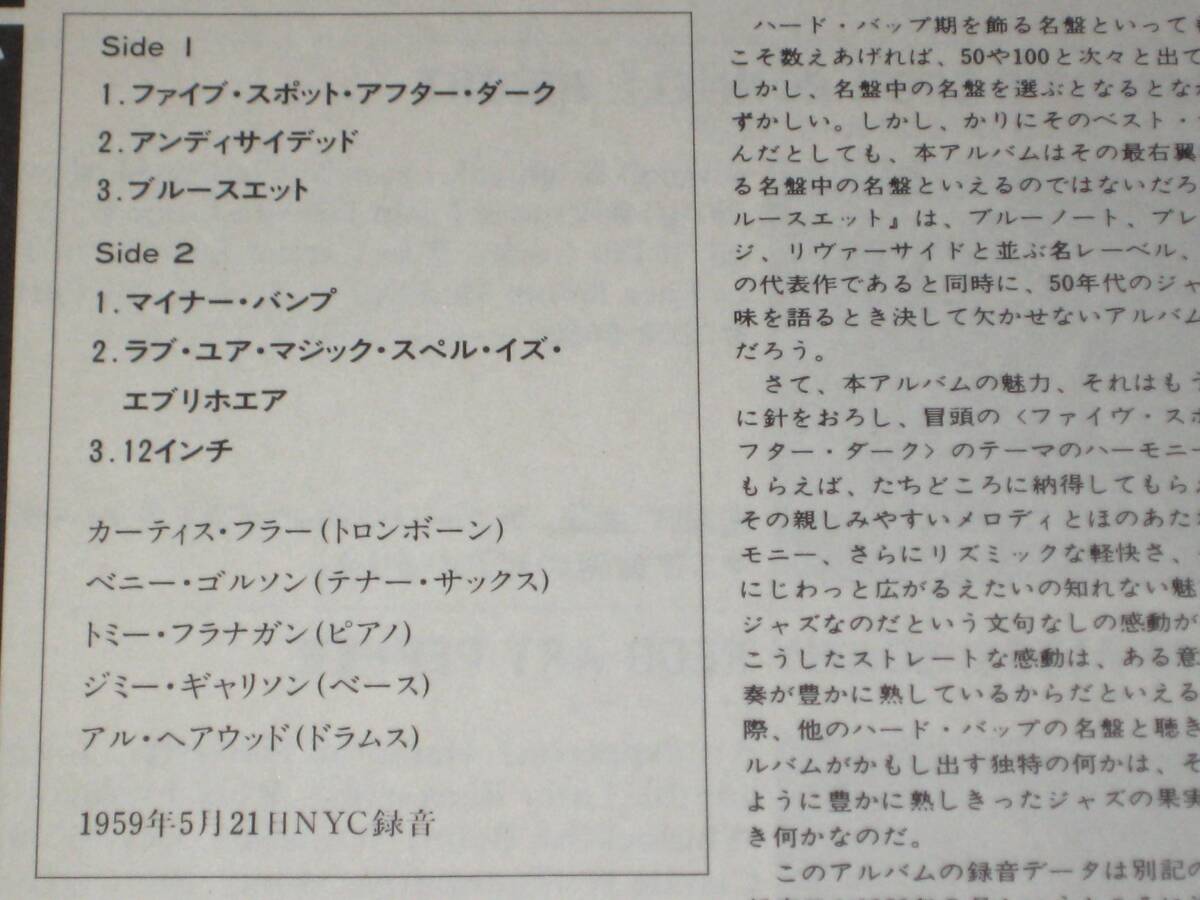 Side 1
1.ファイブ・スポット・アフター・ダーク
2.アンディサイデッド
3.ブルースエット
Side 2
1.マイナー・バンプ
2.ラブ・ユア・マジック・スペル・イズ・
エブリホエア
3.12インチ
カーティス・フラー(トロンボーン)
ベニー・ゴルソン(テナー・サックス)
トミー・フラナガン(ピアノ)
ジミー・ギャリソン(ベース)
アル・ヘアウッド(ドラムス)
1959年5月21日NYC録音
ハード・バップ期を飾る名盤といっても
こそ数えあげれば、50や100と次々と出て
しかし、名盤中の名盤を選ぶとなるとな
ずかしい。しかし、かりにそのベスト・
んだとしても、本アルバムはその最右翼
る名盤中の名盤といえるのではないだろ
ルースエット』は、ブルーノート、プレ
ジ、リヴァーサイドと並ぶ名レーベル、
の代表作であると同時に、50年代のジャ
味を語るとき決して欠かせないアルバム
だろう。
さて、本アルバムの魅力、それはもう
に針をおろし、冒頭の〈ファイヴ・スポ
フター・ダーク〉のテーマのハーモニー
もらえば、たちどころに納得してもらえ
その親しみやすいメロディとほのあた
モニー、さらにリズミックな軽快さ、
にじわっと広がるえたいの知れない魅
ジャズなのだという文句なしの感動が
こうしたストレートな感動は、ある意
奏が豊かに熟しているからだといえる
際、他のハード・バップの名盤と聴き
ルバムがかもし出す独特の何かは、そ
ように豊かに熟しきったジャズの果実
き何かなのだ。
このアルバムの録音データは別記の